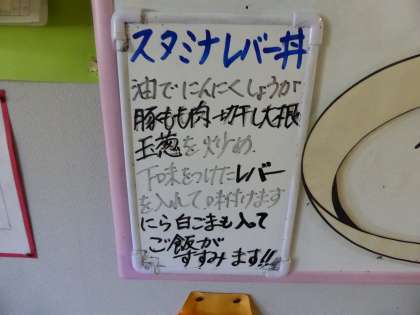 スタミナレバー丼
油でにんにくしょうが
豚もも肉切干し大根
玉葱を炒め
下味をつけたレバー
を入れて味付けます
にら白ごまも入って
ご飯が
すすみます!!